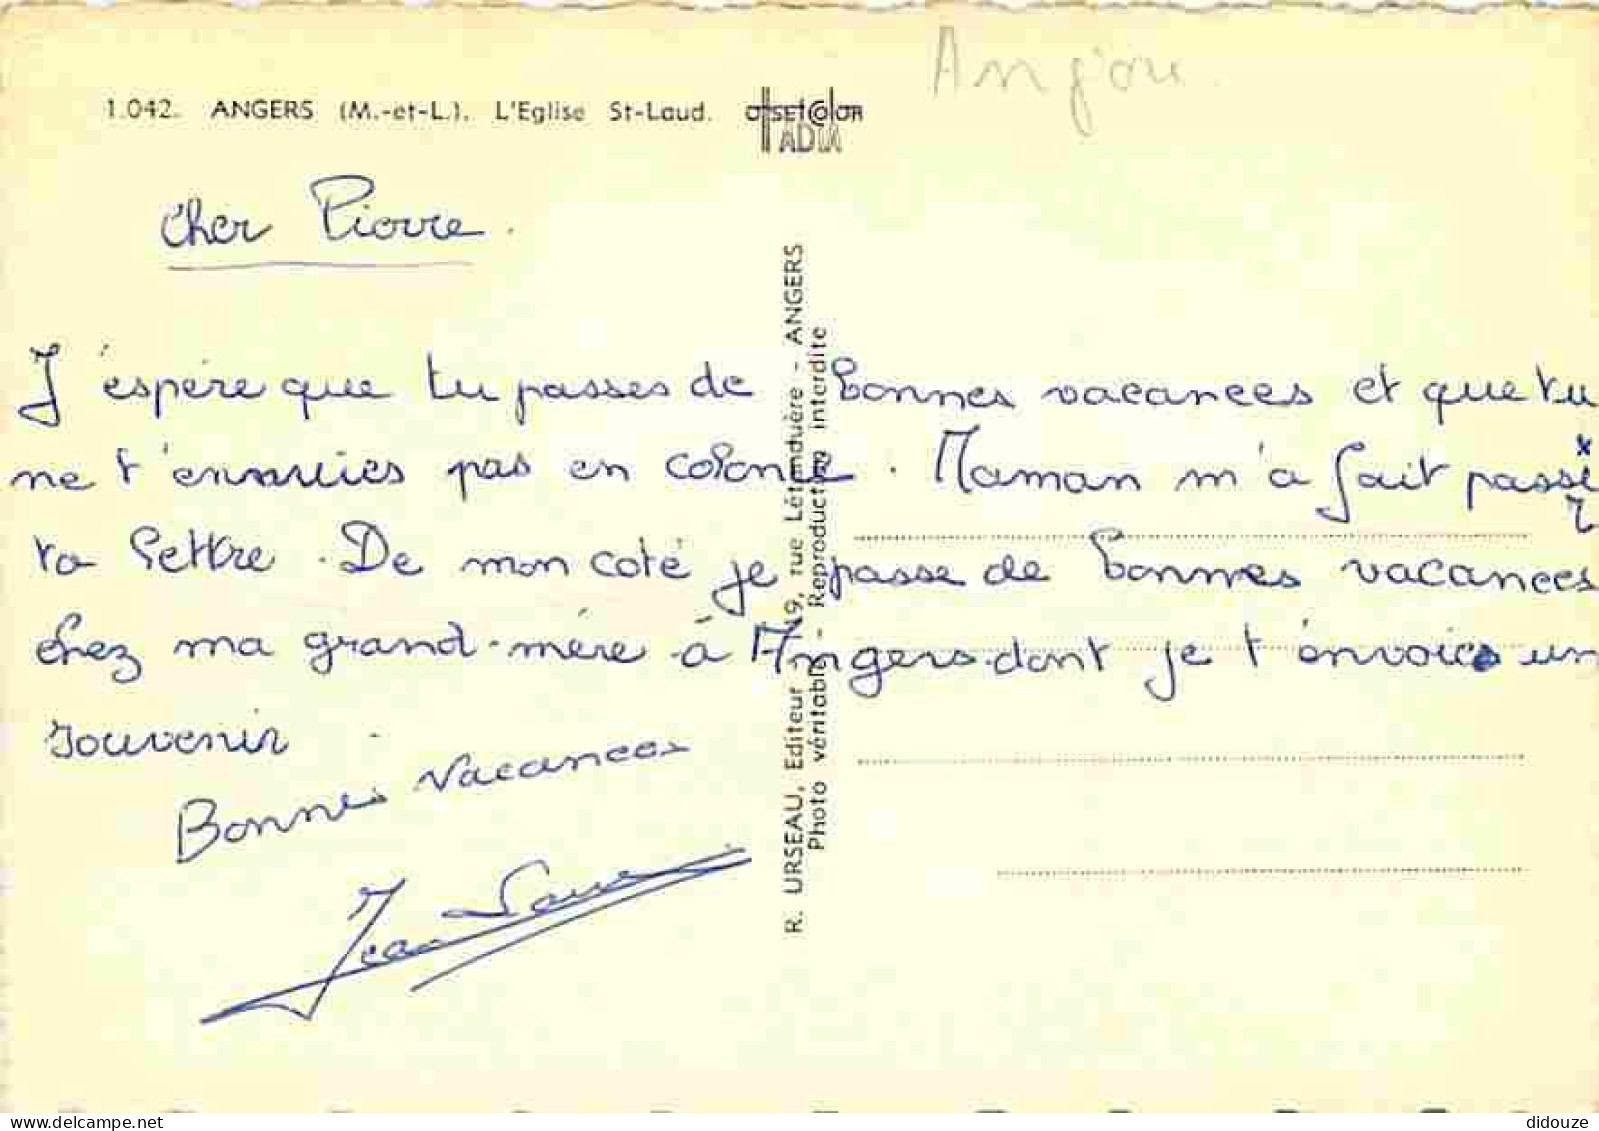 Anjou
1.042. ANGERS (M.-et-L.). L'Eglise St-Laud. OffSETCOLOR
IADIA
Cher Pierre.
J'espère que tu passes de bonnes vacances et que tu
ne t'ennuies pas en colonie. Maman m'a fait passé
r
ta lettre. De mon coté je passe de bonnes vacances
chez ma grand-mère à Angers dont je t'envoie un
souvenir.
Bonnes vacances
Jean
R. URSEAU, Editeur 149, rue Létanduère - ANGERS
Photo véritable - Reproduction interdite
didouze